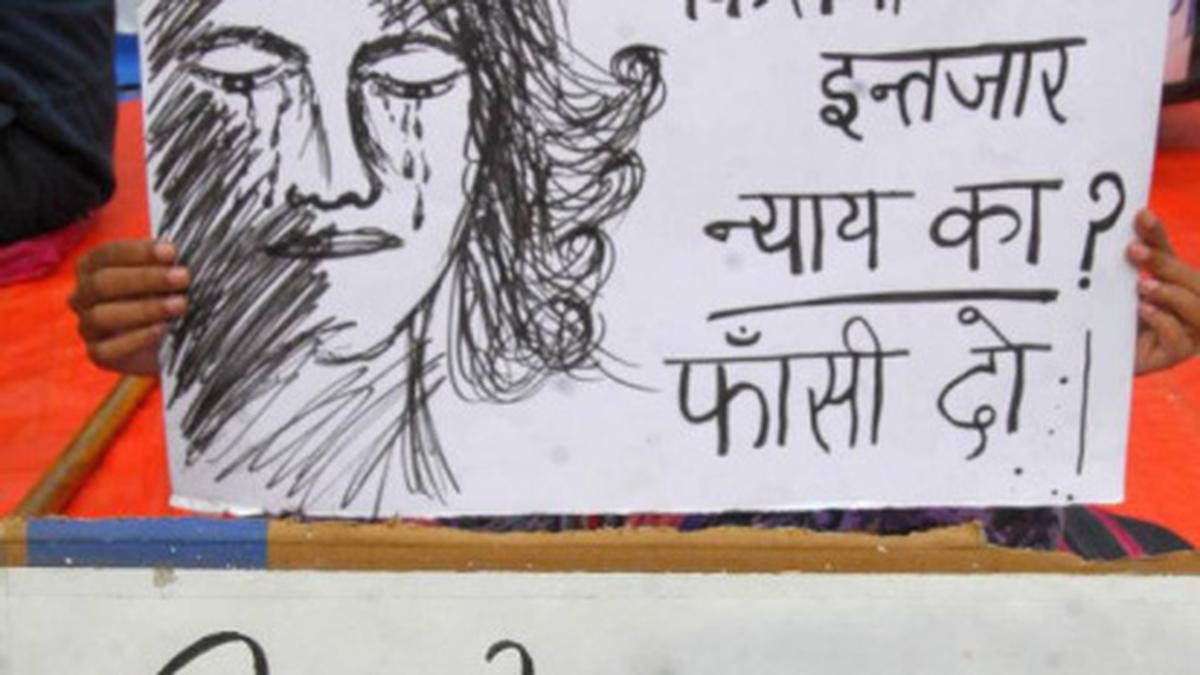 इन्तजार
न्याय का?
फाँसी दो।